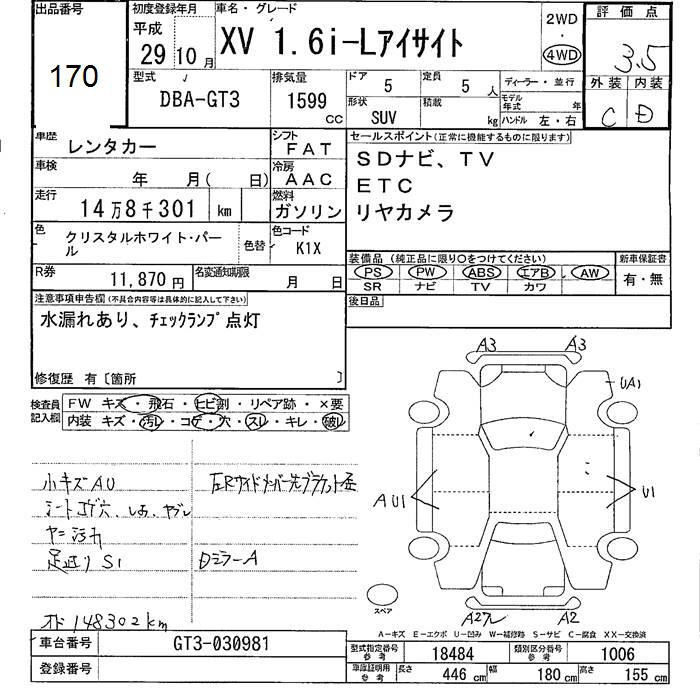 出品番号
170
初度登録年月
平成
29 10月
車名・グレード
XV 1.6i-Lアイサイト
2WD
・
4WD
評価点
3.5
外装 内装
C D
型式
DBA-GT3
排気量
1599 CC
ドア
5
定員
5 人
形状
SUV
積載
kg
ディーラー・並行
モデル年式 年
ハンドル 左・右
車歴
レンタカー
シフト
FAT
車検
年 月( 日)
冷房
AAC
走行
14万8千301 km
燃料
ガソリン
色
クリスタルホワイト・パール
色替
色コード
K1X
R券
11,870円
名変通知期限
月 日
セールスポイント(正常に機能するものに限ります)
SDナビ、TV
ETC
リヤカメラ
装備品(純正品に限り○をつけてください)
PS PW ABS エアB AW
SR ナビ TV カワ
新車保証書
有・無
後日品
注意事項申告欄(不具合内容等は具体的に記入して下さい)
水漏れあり、チェックランプ点灯
修復歴 有〔箇所 〕
検査員記入欄
FW キズ・飛石・ヒビ割・リペア跡・×要
内装 キズ・汚レ・コゲ・穴・スレ・キレ・破レ
小キズAU
シートコゲ穴、
ヤニ汚れ
足廻りS1
ミラーA
148302km
A3 A3
UA1
AU1
U1
スペア
A2 A2
A-キズ E-エクボ U-凹み W-補修跡 S-サビ C-腐食 XX-交換済
車台番号
GT3-030981
登録番号
型式指定番号
参考
18484
類別区分番号
参考
1006
車庫証明用
参考
長さ
446 cm
幅
180 cm
高さ
155 cm